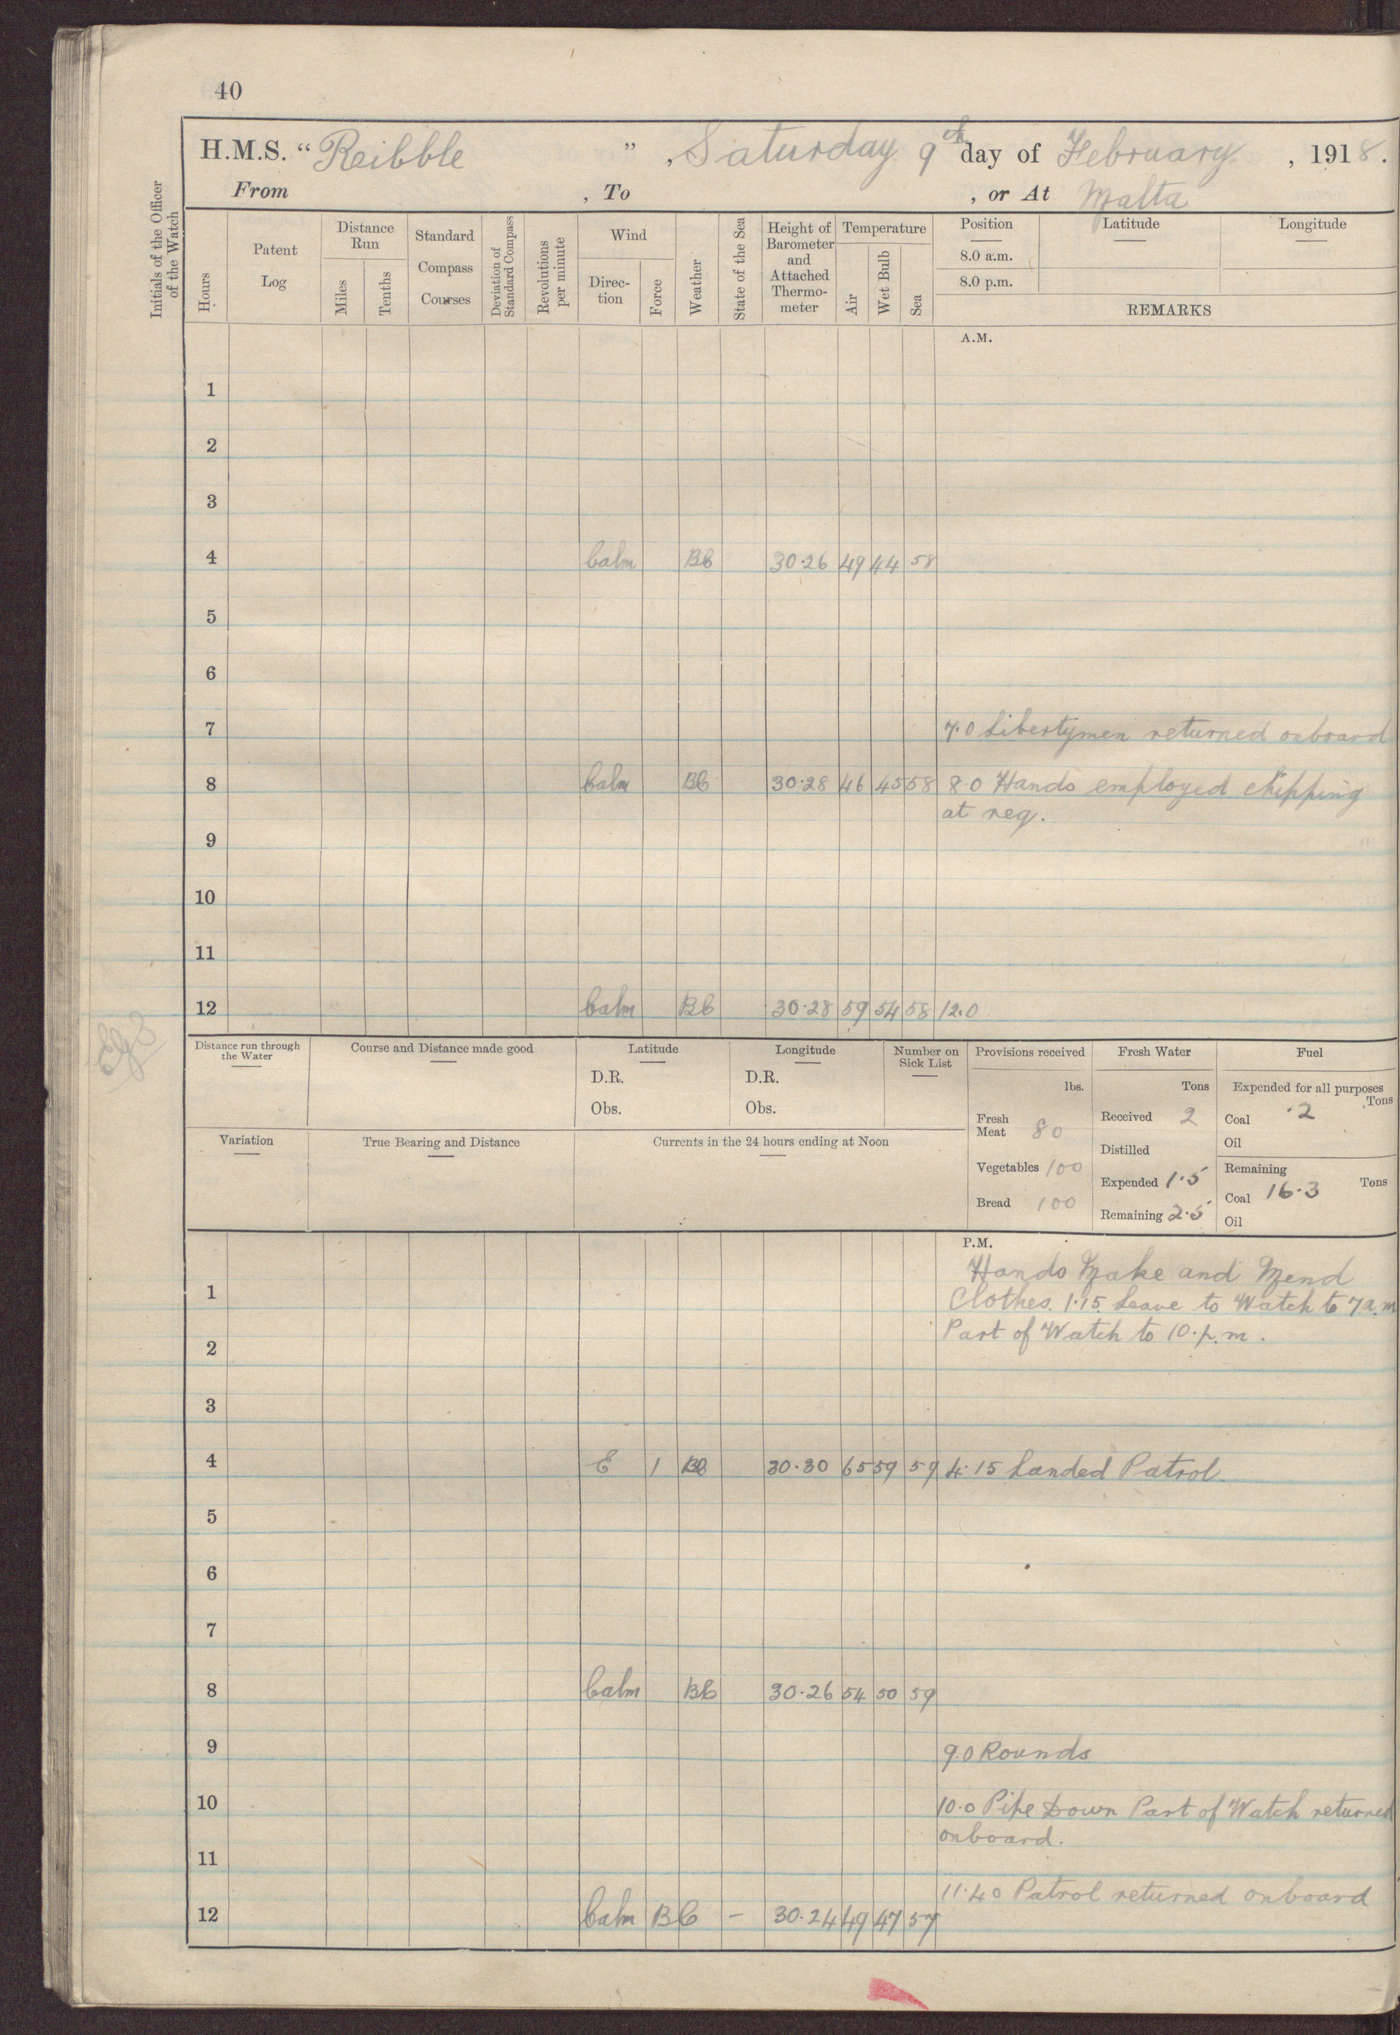 40
H.M.S. “ Reibble ” , Saturday 9th day of February , 1918.
From , To , or At Malta
Initials of the Officer of the Watch
Hours
Patent Log
Distance Run
Miles
Tenths
Standard Compass Courses
Deviation of Standard Compass
Revolutions per minute
Wind
Direction
Force
Weather
State of the Sea
Height of Barometer and Attached Thermometer
Temperature
Air
Wet Bulb
Sea
Position Latitude Longitude
8.0 a.m.
8.0 p.m.
REMARKS
A.M.
1
2
3
4 Calm BC 30.26 49 44 58
5
6
7 7.0 Libertymen returned onboard
8 Calm BC 30.28 46 45 58 8.0 Hands employed chipping
at req.
9
10
11
12 Calm BC 30.28 59 54 58 12.0
Distance run through the Water
Course and Distance made good
Latitude
D.R.
Obs.
Longitude
D.R.
Obs.
Number on Sick List
Provisions received
lbs.
Fresh Meat 80
Vegetables 100
Bread 100
Fresh Water
Tons
Received 2
Distilled
Expended 1.5
Remaining 2.5
Fuel
Expended for all purposes
Tons
Coal .2
Oil
Remaining
Coal 16.3 Tons
Oil
Variation
True Bearing and Distance
Currents in the 24 hours ending at Noon
P.M.
Hands Make and Mend
1 Clothes. 1.15 Leave to Watch to 7 a.m
Part of Watch to 10.p.m.
2
3
4 E 1 BC 30.30 65 59 59 4.15 Landed Patrol
5
6
7
8 Calm BC 30.26 54 50 59
9 9.0 Rounds
10 10.0 Pipe Down Part of Watch returned
onboard.
11
11.40 Patrol returned onboard
12 Calm BC – 30.24 49 47 57